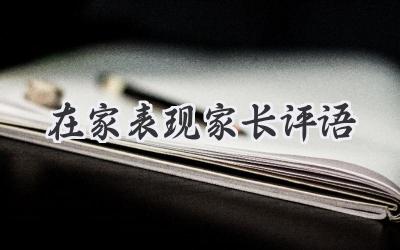 在家表现家长评语